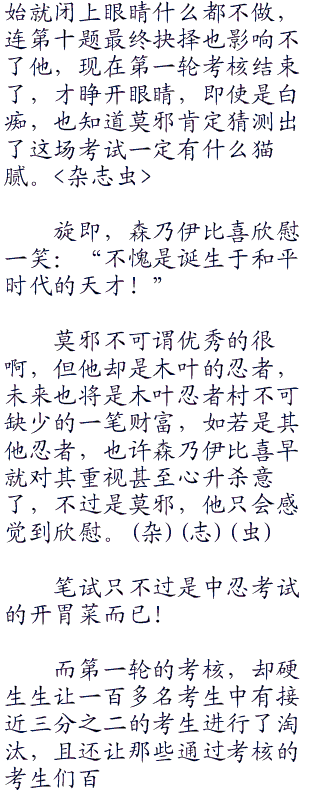 始就闭上眼睛什么都不做，
连第十题最终抉择也影响不
了他，现在第一轮考核结束
了，才睁开眼睛，即使是白
痴，也知道莫邪肯定猜测出
了这场考试一定有什么猫
腻。<杂志虫>
旋即，森乃伊比喜欣慰
一笑：“不愧是诞生于和平
时代的天才！”
莫邪不可谓优秀的很
啊，但他却是木叶的忍者，
未来也将是木叶忍者村不可
缺少的一笔财富，如若是其
他忍者，也许森乃伊比喜早
就对其重视甚至心升杀意
了，不过是莫邪，他只会感
觉到欣慰。(杂)(志)(虫)
笔试只不过是中忍考试
的开胃菜而已！
而第一轮的考核，却硬
生生让一百多名考生中有接
近三分之二的考生进行了淘
汰，且还让那些通过考核的
考生们百